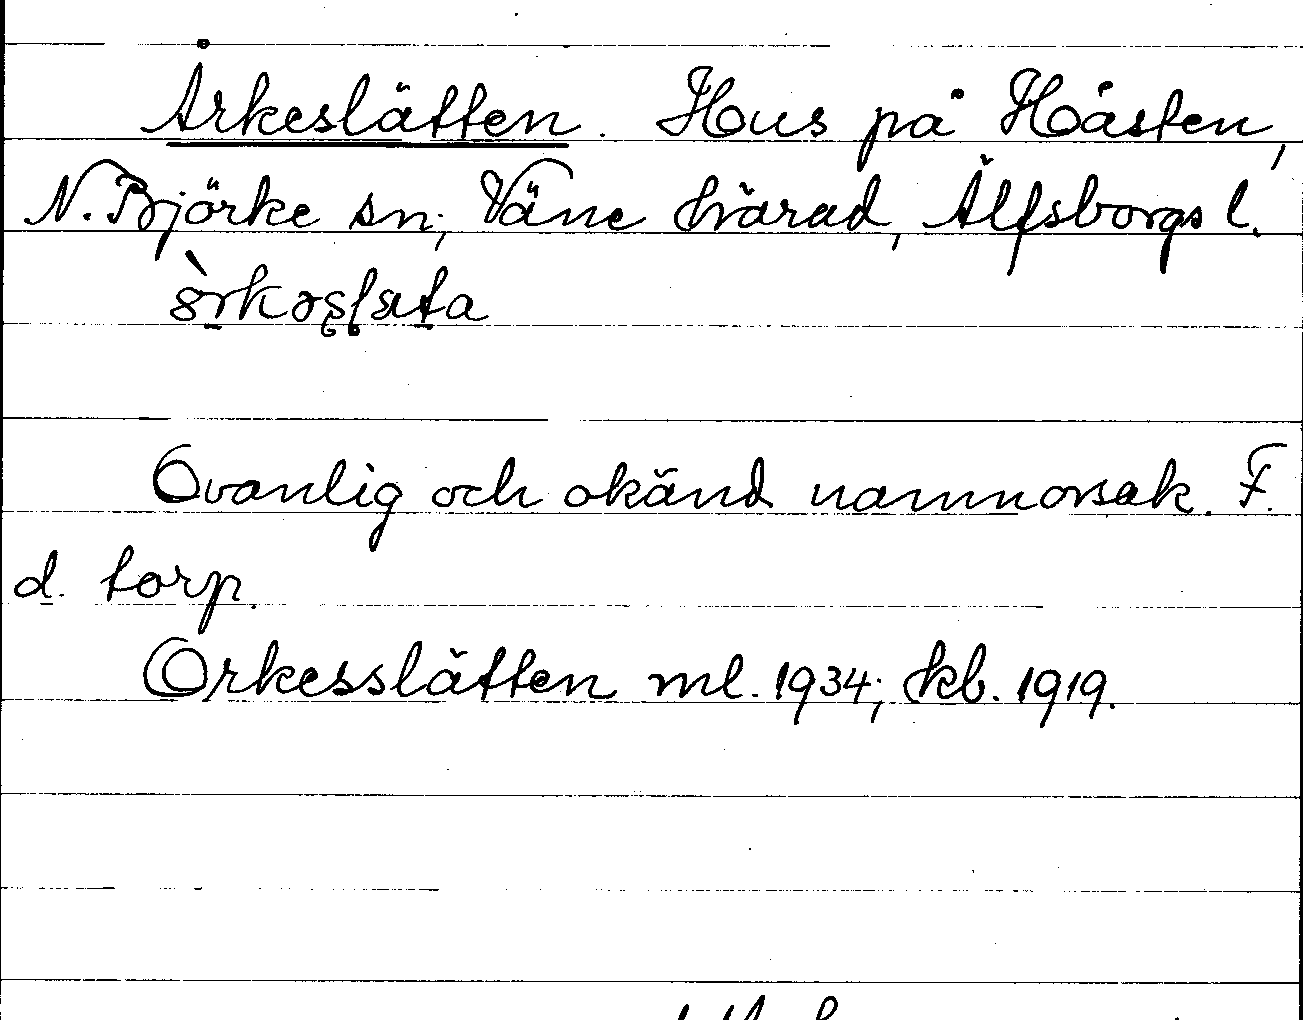 Årkeslätten. Hus på Håsten,
N. Björke sn; Väne härad, Älfsborgs l.
Ovanlig och okänd namnorsak. F.
d. torp.
Orkesslätten ml. 1934; kb. 1919.